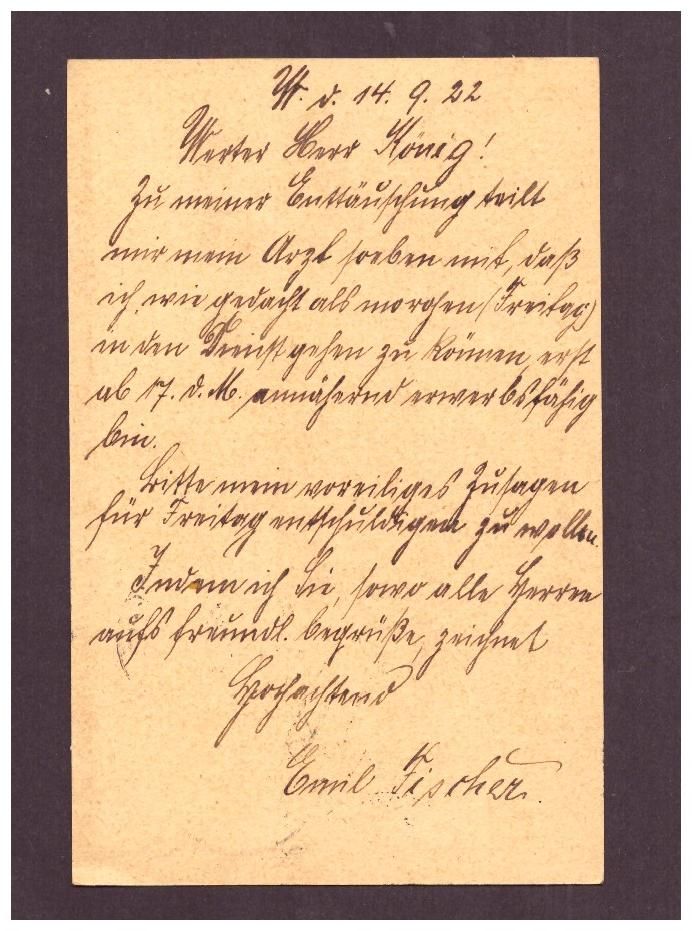 W. d. 14. 9. 22
Werter Herr König!
Zu meiner Enttäuschung teilt
mir mein Arzt soeben mit, daß
ich, wie gedacht als morgen (Freitag)
in den Dienst gehen zu können, erst
ab 17. d. M. annähernd erwerbsfähig
bin.
Bitte mein voreiliges Zusagen
für Freitag entschuldigen zu wollen.
Indem ich Sie, sowo alle Herren
aufs freundl. begrüße, zeichnet
Hochachtend
Emil Fischer.